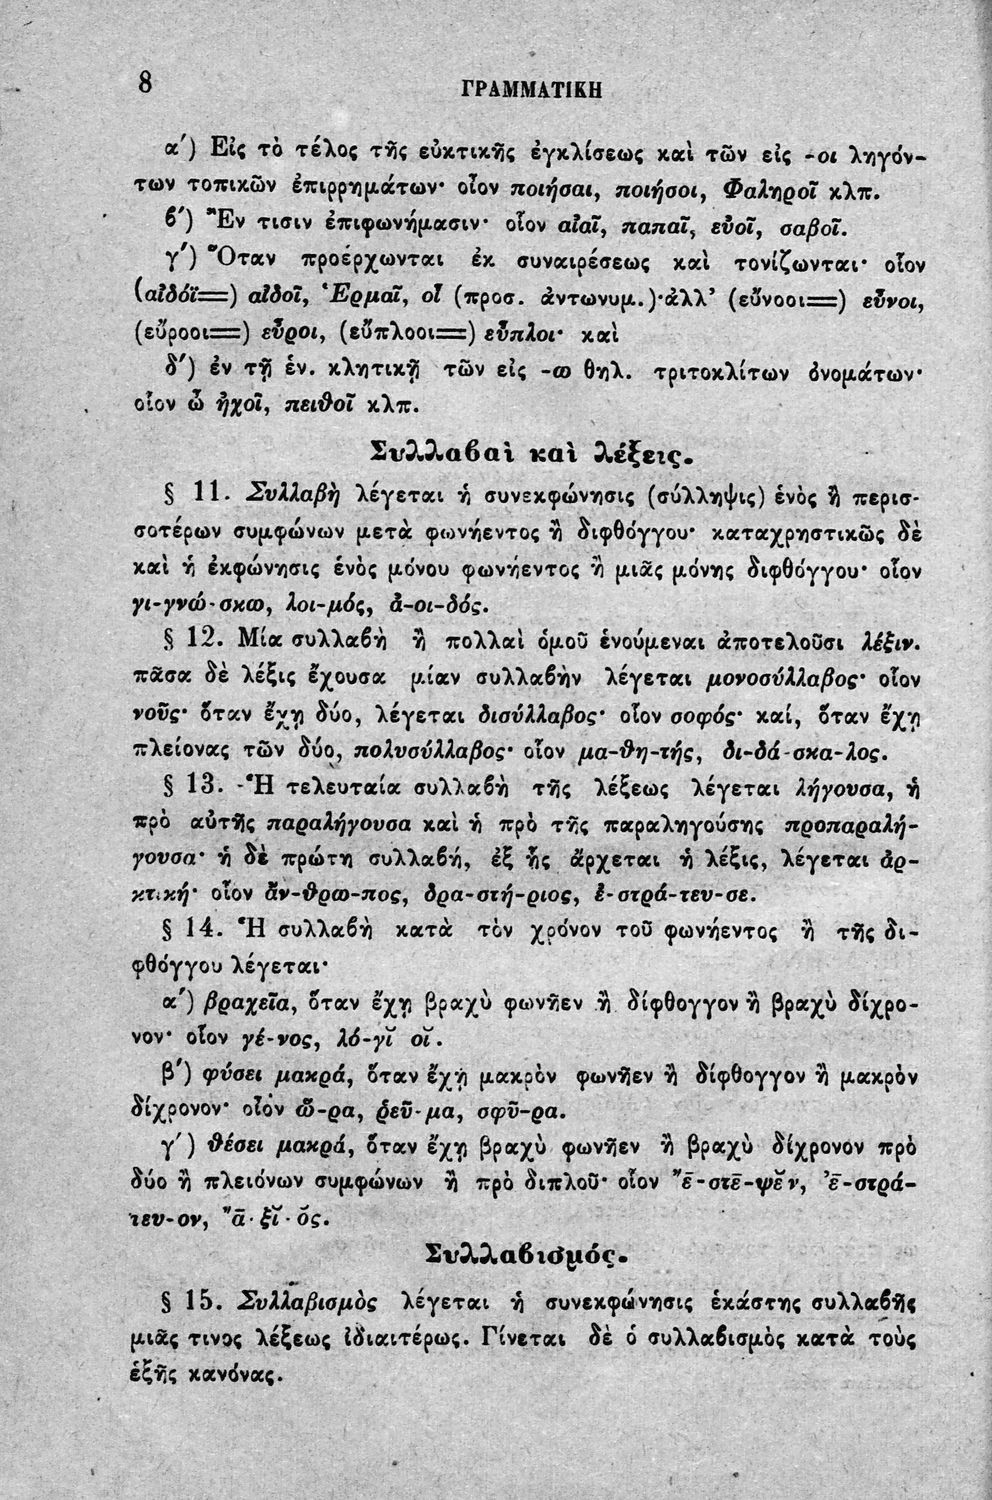 8
ΓΡΑΜΜΑΤΙΚΗ
α΄) Εἰς τὸ τέλος τῆς εὐκτικῆς ἐγκλίσεως καὶ τῶν εἰς -οι ληγόν-
των τοπικῶν ἐπιρρημάτων· οἷον ποιήσαι, ποιήσοι, Φαληροῖ κλπ.
ϐ΄) Ἔν τισιν ἐπιφωνήμασιν· οἷον αἰαῖ, παπαῖ, εὐοῖ, σαβοῖ.
γ΄) Ὅταν προέρχωνται ἐκ συναιρέσεως καὶ τονίζωνται· οἷον
(αἰδόϊ=) αἰδοῖ, Ἑρμαῖ, οἷ (προσ. ἀντωνυμ.)·ἀλλ’ (εὔνοοι=) εὖνοι,
(εὔροοι=) εὖροι, (εὔπλοοι=) εὖπλοι· καὶ
δ΄) ἐν τῇ ἑν. κλητικῇ τῶν εἰς -ω θηλ. τριτοκλίτων ὀνομάτων·
οἷον ὦ ἠχοῖ, πειθοῖ κλπ.
Συλλαϐαὶ καὶ λέξεις.
§ 11. Συλλαβὴ λέγεται ἡ συνεκφώνησις (σύλληψις) ἑνὸς ἢ περισ-
σοτέρων συμφώνων μετὰ φωνήεντος ἢ διφθόγγου· καταχρηστικῶς δὲ
καὶ ἡ ἐκφώνησις ἑνὸς μόνου φωνήεντος ἢ μιᾶς μόνης διφθόγγου· οἷον
γι-γνώ-σκω, λοι-μός, ἀ-οι-δός.
§ 12. Μία συλλαϐὴ ἢ πολλαὶ ὁμοῦ ἑνούμεναι ἀποτελοῦσι λέξιν.
πᾶσα δὲ λέξις ἔχουσα μίαν συλλαϐὴν λέγεται μονοσύλλαβος· οἷον
νοῦς· ὅταν ἔχῃ δύο, λέγεται δισύλλαβος· οἷον σοφός· καί, ὅταν ἔχῃ
πλείονας τῶν δύο, πολυσύλλαβος· οἷον μα-θη-τής, δι-δά-σκα-λος.
§ 13. -Ἡ τελευταία συλλαϐὴ τῆς λέξεως λέγεται λήγουσα, ἡ
πρὸ αὐτῆς παραλήγουσα καὶ ἡ πρὸ τῆς παραληγούσης προπαραλή-
γουσα· ἡ δὲ πρώτη συλλαϐή, ἐξ ἧς ἄρχεται ἡ λέξις, λέγεται ἀρ-
κτική· οἷον ἄν-θρω-πος, δρα-στή-ριος, ἐ-στρά-τευ-σε.
§ 14. Ἡ συλλαϐὴ κατὰ τὸν χρόνον τοῦ φωνήεντος ἢ τῆς δι-
φθόγγου λέγεται·
α΄) βραχεῖα, ὅταν ἔχῃ βραχὺ φωνῆεν ἢ δίφθογγον ἢ βραχὺ δίχρο-
νον· οἷον γέ-νος, λό-γῐ οῐ.
β΄) φύσει μακρά, ὅταν ἔχῃ μακρὸν φωνῆεν ἢ δίφθογγον ἢ μακρὸν
δίχρονον· οἷον ὥ-ρα, ῥεῦ-μα, σφῦ-ρα.
γ΄) θέσει μακρά, ὅταν ἔχῃ βραχὺ φωνῆεν ἢ βραχὺ δίχρονον πρὸ
δύο ἢ πλειόνων συμφώνων ἢ πρὸ διπλοῦ· οἷον ῎ε̄-στε̄-ψε̆ν, ᾿ε̄-στρά-
τευ-ον, ῎ᾱ-ξῐ-ο̆ς.
Συλλαϐισμός.
§ 15. Συλλαβισμὸς λέγεται ἡ συνεκφώνησις ἑκάστης συλλαϐῆς
μιᾶς τινος λέξεως ἰδιαιτέρως. Γίνεται δὲ ὁ συλλαϐισμὸς κατὰ τοὺς
ἑξῆς κανόνας.